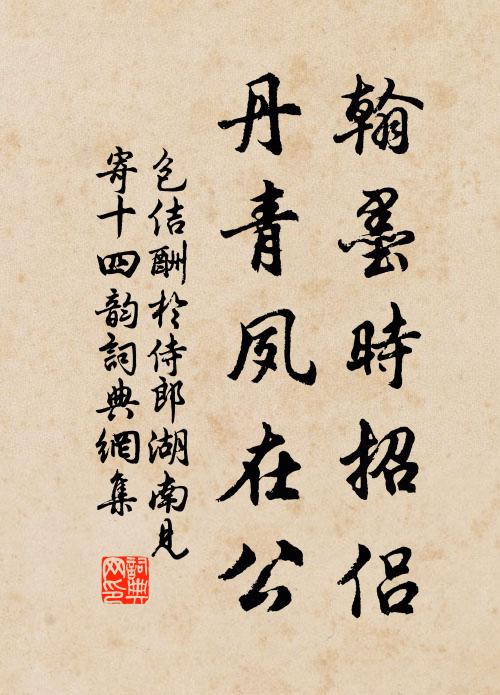 翰墨時招侶
丹青夙在公
包佶酬於侍郎湖南見
寄十四韵詞典網集
詞典
网印